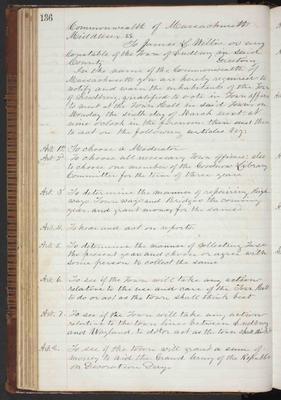 136
Commonwealth of Massachusetts
Middlesex ss.
To James L. Willis or any
Constable of the Town of Sudbury in said
County Greeting
In the name of the Commonwealth of
Massachusetts you are hereby required to
notify and warn the inhabitants of the Town
of Sudbury, qualified to vote in Town affairs
to meet at the Town Hall in said Town on
Monday the sixth day of March next at
nine o'clock in the forenoon then and there
to act on the following articles viz:
Art. 1st. To choose a Moderator
Art. 2d. To choose all necessary Town officers: also
to choose one member of the Goodnow Library
Committee for the term of three years
Art. 3d. To determine the manner of repairing High
ways Town ways and Bridges the coming
year and grant money for the same
Art. 4. To hear and act on reports.
Art. 5. To determine the manner of collecting Taxes
the present year and choose or agree with
some person to collect the same
Art. 6. To see if the Town will take any action
relative to the use and care of the Town Hall
to do or act as the town shall think best
Art. 7. To see if the Town will take any action
relative to the town lines between Sudbury
and Wayland to do or act as the town
Art. 8. To see if the town will grant a sum of
money to aid the Grand Army of the Republic
on Decoration Day